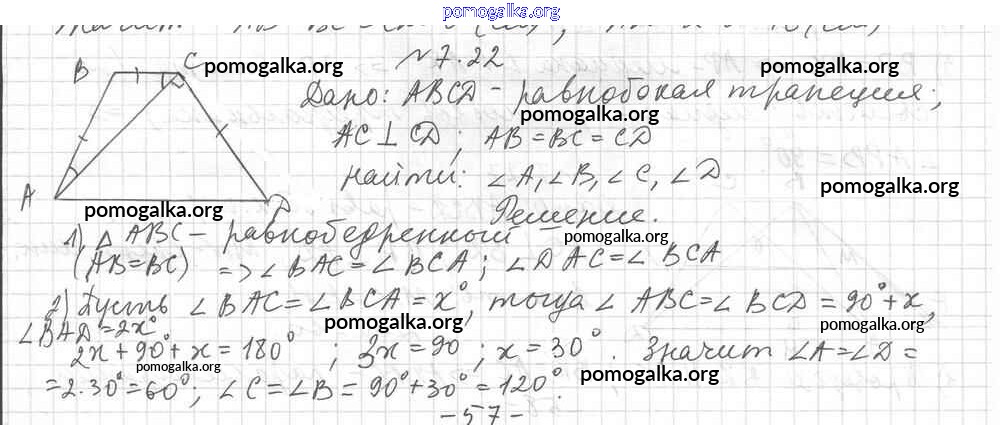 pomogalka.org
№ 7.22
B C pomogalka.org pomogalka.org
Дано: ABCD - равнобокая трапеция;
pomogalka.org
AC ⊥ CD ; AB = BC = CD
Найти: ∠A, ∠B, ∠C, ∠D
pomogalka.org
A D
pomogalka.org
Решение.
1) △ ABC - равнобедренный
pomogalka.org
(AB = BC) => ∠BAC = ∠BCA ; ∠DAC = ∠BCA
2) Пусть ∠BAC = ∠BCA = x°, тогда ∠ABC = ∠BCD = 90° + x,
pomogalka.org pomogalka.org
∠BAD = 2x°
2x + 90° + x = 180° ; 3x = 90 ; x = 30°. Значит ∠A = ∠D =
pomogalka.org pomogalka.org
= 2·30° = 60°; ∠C = ∠B = 90° + 30° = 120°.
- 57 -